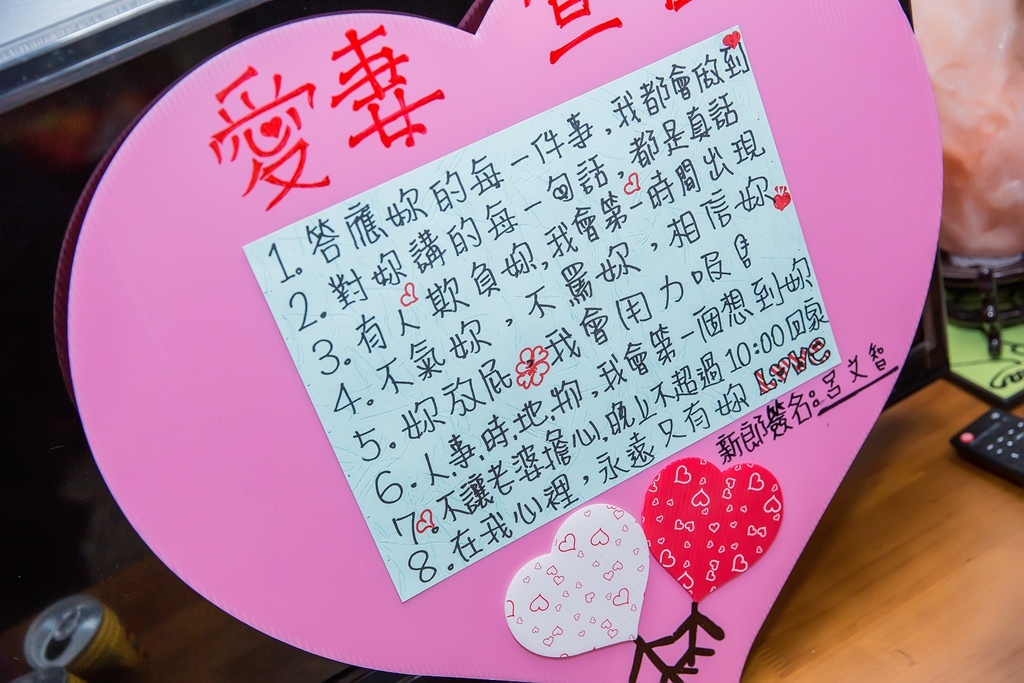 愛妻宣
1. 答應妳的每一件事,我都會做到
2. 對妳講的每一句話,都是真話
3. 有人欺負妳,我會第一時間出現
4. 不氣妳,不罵妳,相信妳
5. 妳放屁我會用力吸!
6. 人.事.時.地.物,我會第一個想到妳
7. 不讓老婆擔心,晚上不超過10:00回家
8. 在我心裡,永遠只有妳 Love
新郎簽名:呂文智